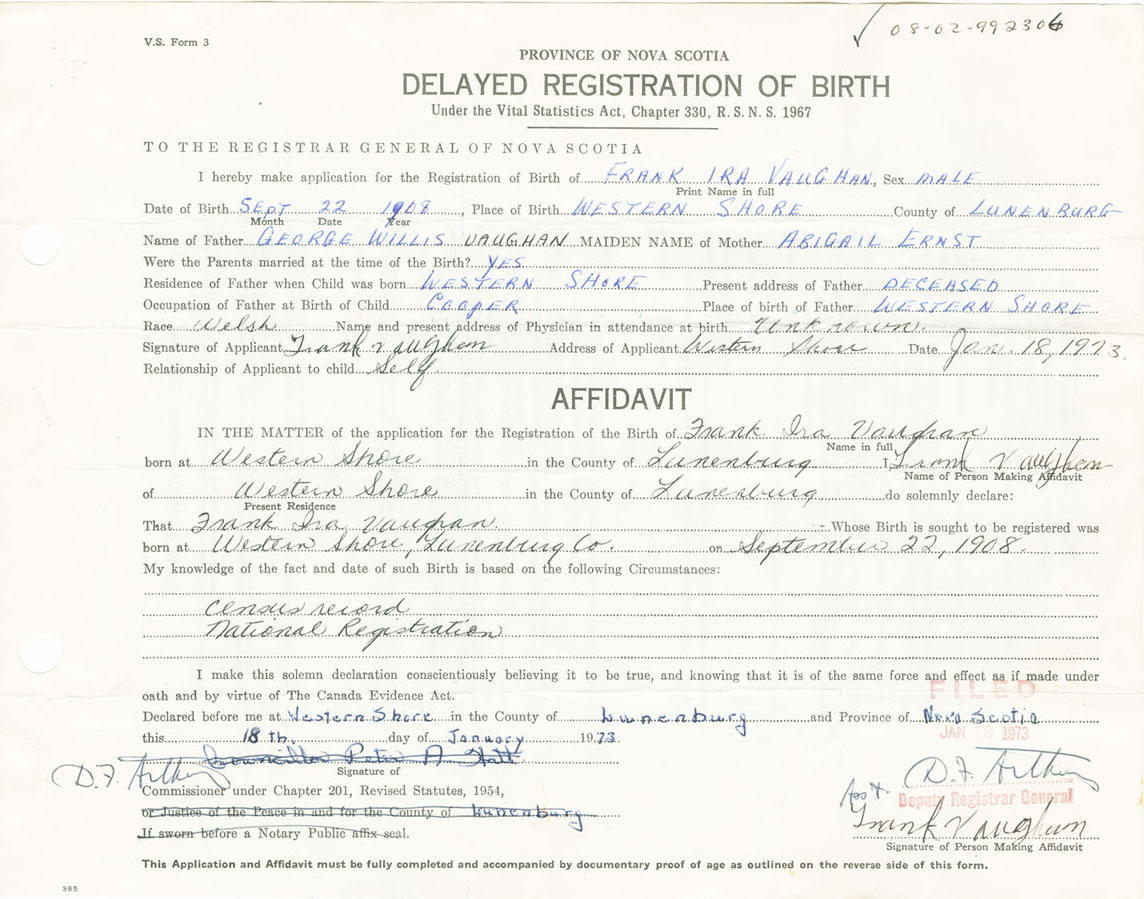 08-02-992306
V.S. Form 3
PROVINCE OF NOVA SCOTIA
DELAYED REGISTRATION OF BIRTH
Under the Vital Statistics Act, Chapter 330, R. S. N. S. 1967
TO THE REGISTRAR GENERAL OF NOVA SCOTIA
I hereby make application for the Registration of Birth of FRANK IRA VAUGHAN, Sex MALE
Print Name in full
Date of Birth SEPT 22 1908, Place of Birth WESTERN SHORE County of LUNENBURG
Month Date Year
Name of Father GEORGE WILLIS VAUGHAN MAIDEN NAME of Mother ABIGAIL ERNST
Were the Parents married at the time of the Birth? YES
Residence of Father when Child was born WESTERN SHORE Present address of Father DECEASED
Occupation of Father at Birth of Child COOPER Place of birth of Father WESTERN SHORE
Race Welsh Name and present address of Physician in attendance at birth Unknown.
Signature of Applicant Frank Vaughan Address of Applicant Western Shore Date Jan. 18, 1973.
Relationship of Applicant to child Self.
AFFIDAVIT
IN THE MATTER of the application for the Registration of the Birth of Frank Ira Vaughan
Name in full
born at Western Shore in the County of Lunenburg I, Frank Vaughan
Name of Person Making Affidavit
of Western Shore in the County of Lunenburg do solemnly declare:
Present Residence
That Frank Ira Vaughan. Whose Birth is sought to be registered was
born at Western Shore, Lunenburg Co. on September 22, 1908.
My knowledge of the fact and date of such Birth is based on the following Circumstances:
Census record
National Registration
I make this solemn declaration conscientiously believing it to be true, and knowing that it is of the same force and effect as if made under
oath and by virtue of The Canada Evidence Act.
FILED
Declared before me at Western Shore in the County of Lunenburg and Province of Nova Scotia
this 18th. day of January 1973
JAN 18 1973
Councillor Peter A.
Signature of
D. F. Arthur
Commissioner under Chapter 201, Revised Statutes, 1954,
or Justice of the Peace in and for the County of Lunenburg
If sworn before a Notary Public affix seal.
D. F. Arthur
Ass't.
Deputy Registrar General
Frank Vaughan
Signature of Person Making Affidavit
This Application and Affidavit must be fully completed and accompanied by documentary proof of age as outlined on the reverse side of this form.
385